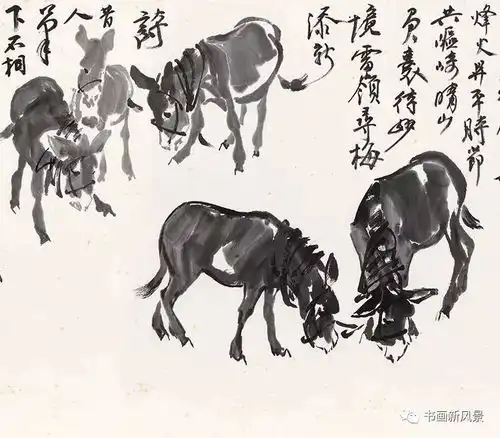 烽火昇平時節
共嶇崎晴山
負囊待妙
境雪嶺尋梅
添新
詩
昔
人
下不相
书画新风景